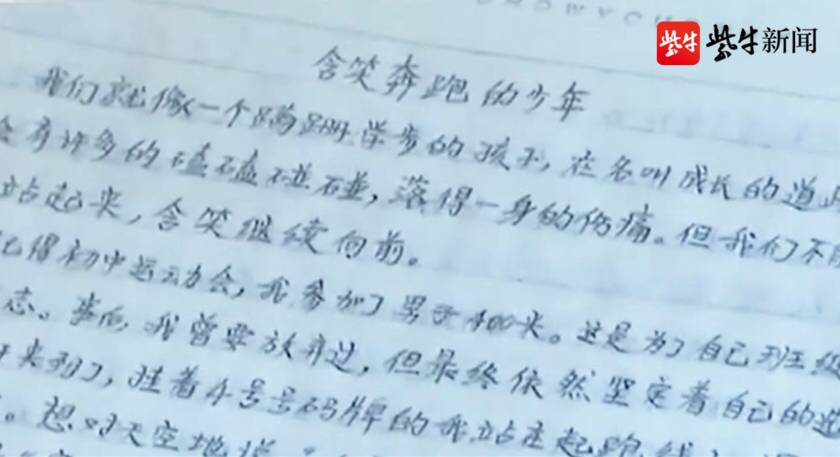 紫牛 紫牛新闻
含笑奔跑的少年
我们就像一个蹒跚学步的孩子，在名叫成长的道
有许多的磕磕碰碰，落得一身的伤痛。但我们不
站起来，含笑继续向前。
记得初中运动会，我参加了男子400米。这是为了自己班级
志。当时，我曾要放弃过，但最终依然坚定着自己的选
来到了，挂着4号号码牌的我站在起跑线
。想对天空地说